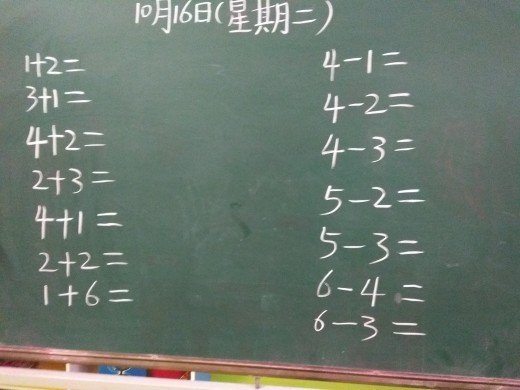 10月16日(星期二)
1+2=
3+1=
4+2=
2+3=
4+1=
2+2=
1+6=
4-1=
4-2=
4-3=
5-2=
5-3=
6-4=
6-3=